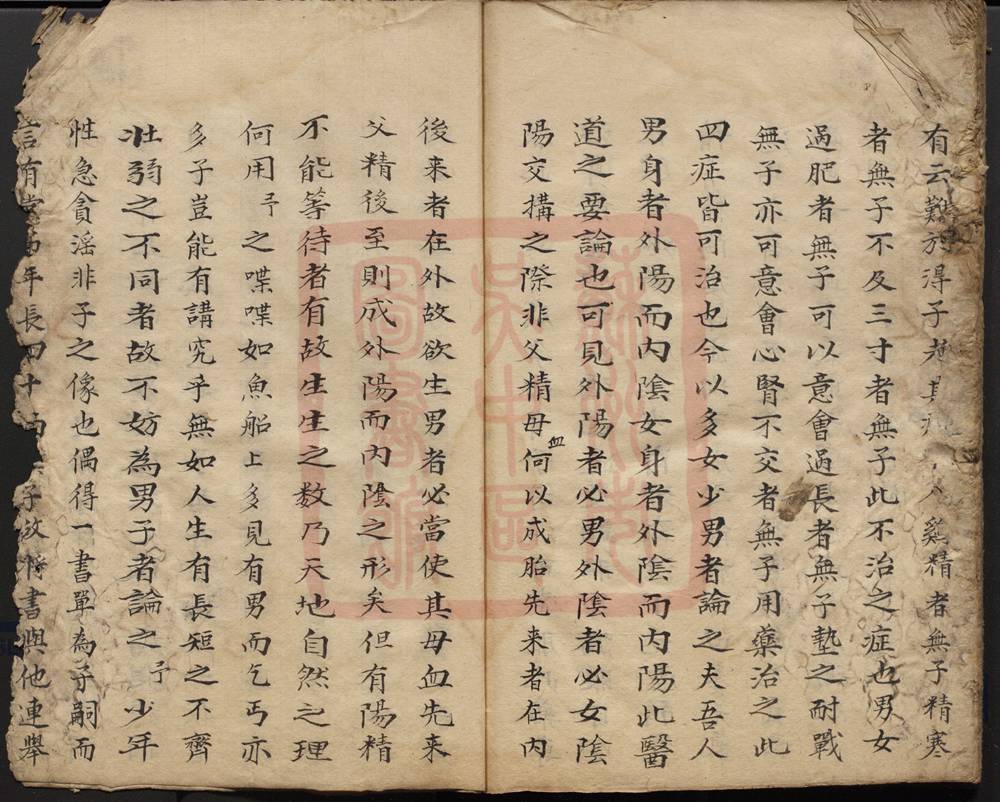 有云難於得子者其　　人雞精者無子精寒
者無子不及三寸者無子此不治之症也男女
過肥者無子可以意會過長者無子墊之耐戰
無子亦可意會心腎不交者無子用藥治之此
四症皆可治也今以多女少男者論之夫吾人
男身者外陽而內陰女身者外陰而內陽此醫
道之要論也可見外陽者必男外陰者必女陰
陽交搆之際非父精母血何以成胎先来者在內
後来者在外故欲生男者必當使其母血先来
父精後至則成外陽而內陰之形矣但有陽精
不能等待者有故生生之数乃天地自然之理
何用予之喋喋如魚船上多見有男而乞丐亦
多子豈能有講究乎無如人生有長短之不齊
壮弱之不同者故不妨為男子者論之予少年
性急貪滛非子之像也偶得一書單為子嗣而
言有　　年長四十尚　子故將書與他連舉
蘇州市
吳中區
圖書館